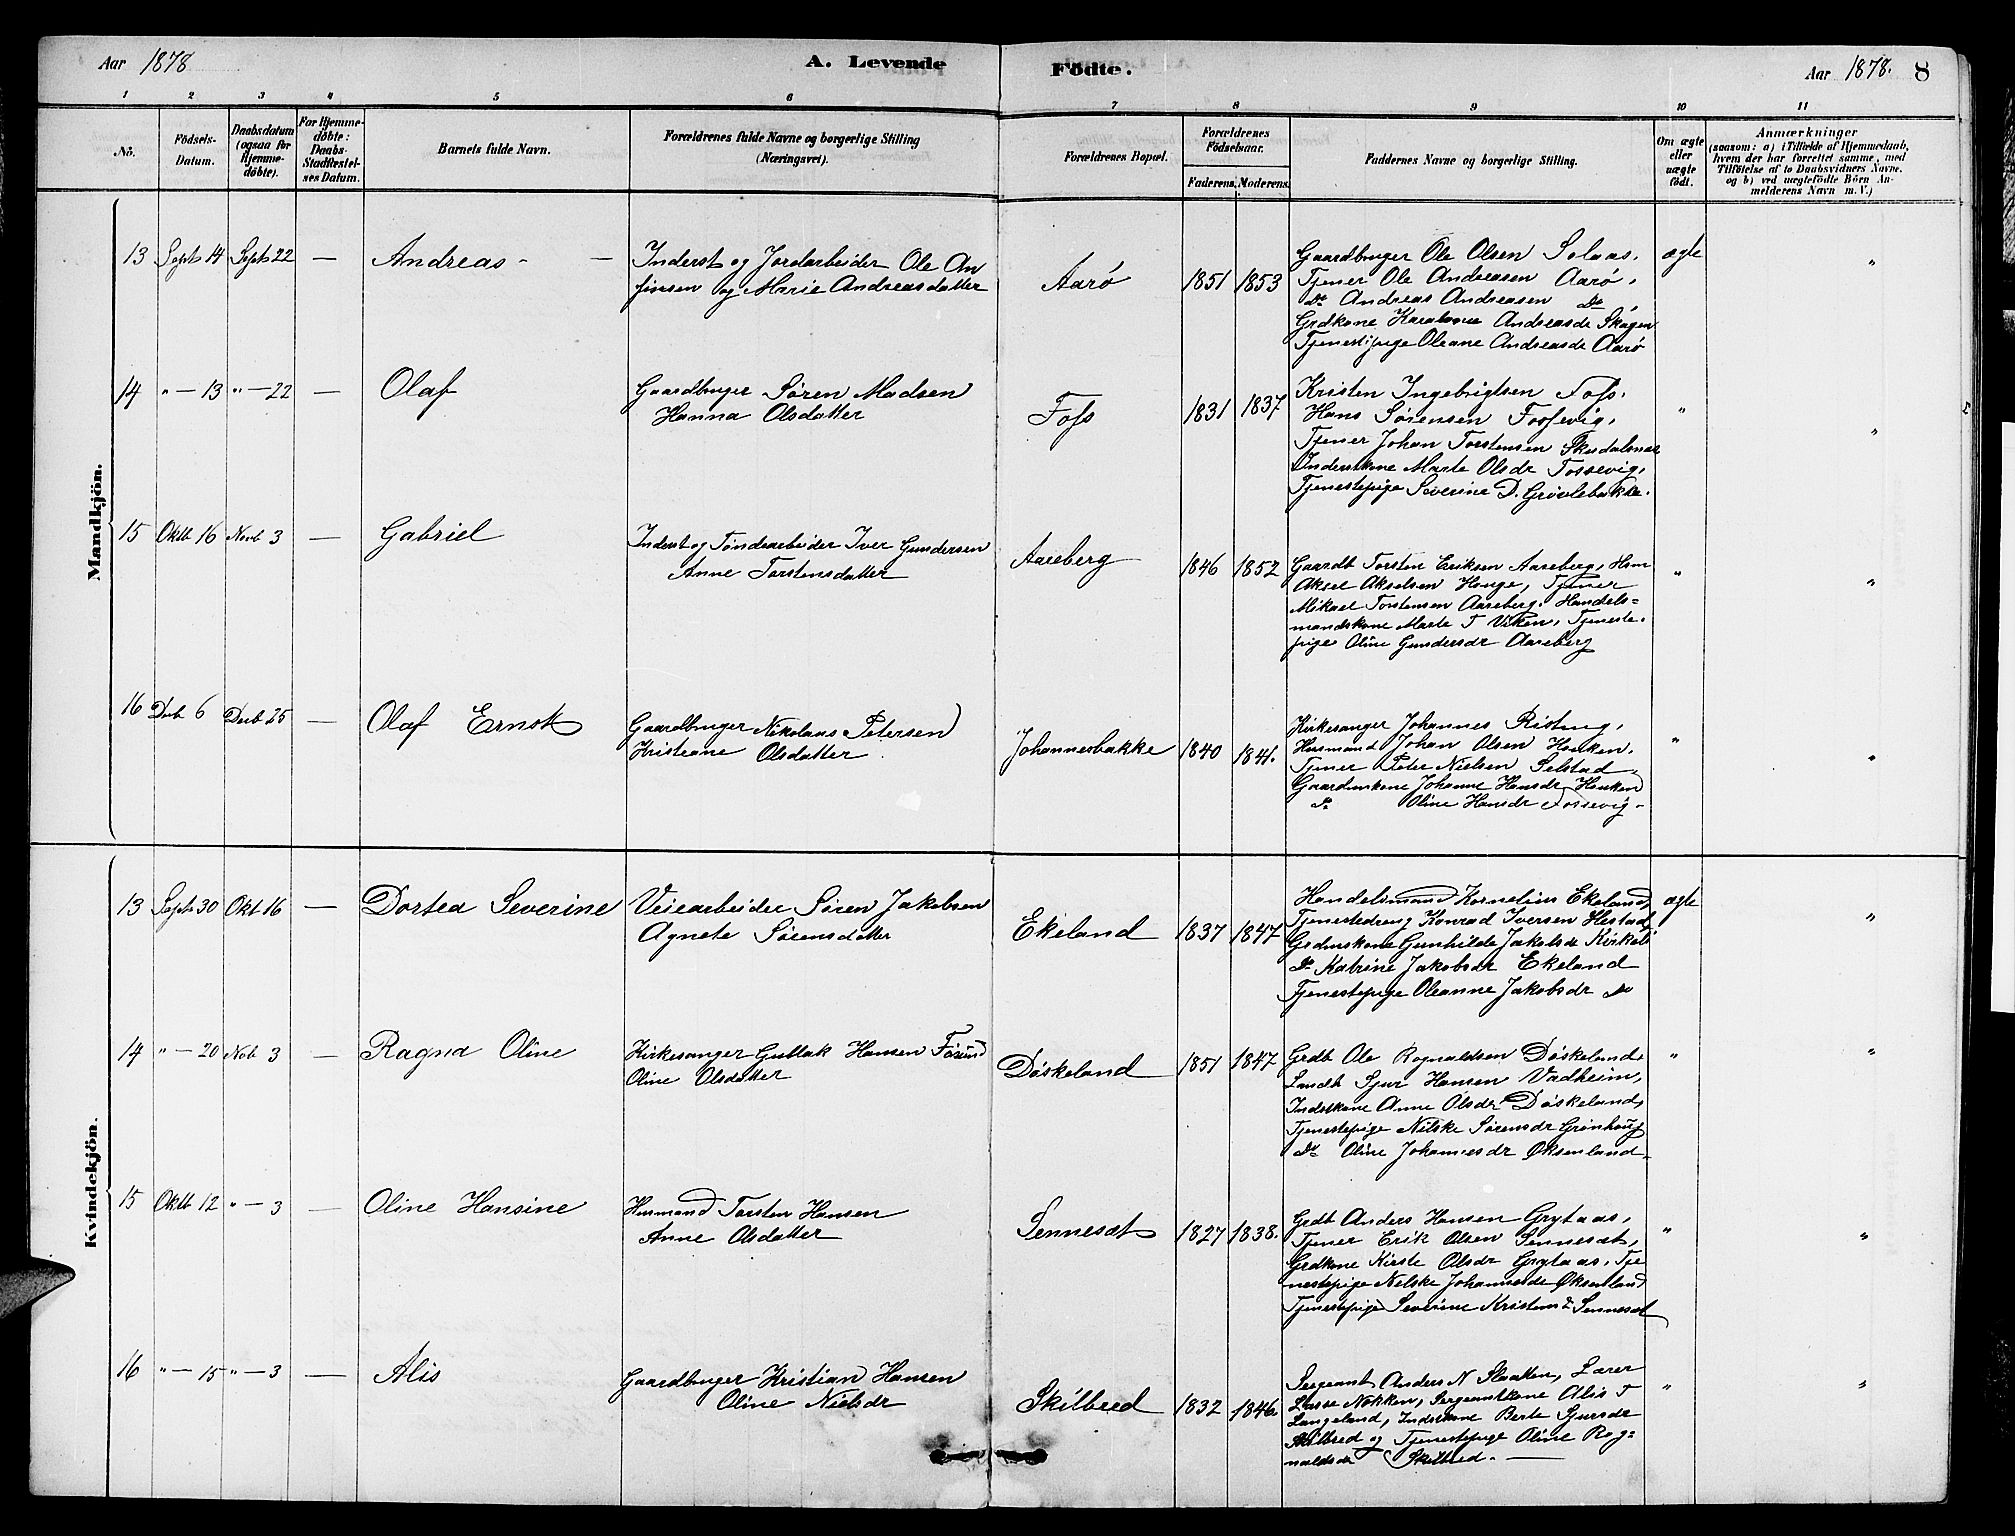 Aar 1878 A. Levende Födte. Aar 1878. 8
1 2 3 4 5 6 7 8 9 10 11
No. Födsels-Datum. Daabsdatum (ogsaa for Hjemmedöbte). For Hjemmedöbte: Daabs-Stadfæstelses Datum. Barnets fulde Navn. Forældrenes fulde Navne og borgerlige Stilling (Næringsvei). Forældrenes Bopæl. Forældrenes Födselsaar. Faderens. Moderens. Faddernes Navne og borgerlige Stilling. Om ægte eller uægte födt. Anmærkninger (saasom: a) i Tilfælde af Hjemmedaab, hvem der har forrettet samme, med Tilföielse af to Daabsvidners Navne, og b) ved uægtefödte Börn Anmelderens Navn m. V.)
Mandkjön.
13 Sept 14 Sept 22 — Andreas - — Inderst og Jordarbeider Ole An
finsen og Marie Andreasdatter Aarø 1851 1853 ægte "
Gaardbruger Ole Olsen Solaas,
Tjener Ole Andreasen Aarø,
do Andreas Andreasen do,
Grdkone Andreasdr Skagen
Tjenestepige Oleane Andreasdr Aarø
14 " — 13 " — 22 — Olaf Gaardbruger Søren Madsen
Hanna Olsdatter Fofs 1831 1837 " "
Kristen Ingebrigtsen Fofs,
Hans Sørensen Fossevig,
Tjener Johan Torstensen
Inderstkone Marte Olsdr Fossevig,
Tjenestepige Severine D. Grøvlebakke.
15 Oktb 16 Novb 3 — Gabriel Inderst og Tøndearbeider Iver Gundersen
Anne Torstensdatter Aareberg 1846 1852 " "
Gaardb Torsten Eriksen Aareberg, Hsm
Aksel Akselsen Hauge, Tjener
Mikael Torstensen Aareberg, Handels=
mandskone Marte T Viken, Tjeneste-
pige Oline Gundersdr Aareberg
16 Decb 6 Decb 25 — Olaf Ernst Gaardbruger Nikolaus Petersen
Kristiane Olsdatter Johannesbakke 1840 1841. " "
Kirkesanger Johannes Risting,
Husmand Johan Olsen Hauken,
Tjener Peter Nielsen Selstad
Gaardmskone Johanne Hansdr Hauken
do Oline Hansdr Fossevig -
Kvindekjön.
13 Sept 30 Okt 16 — Dortea Severine Veiearbeider Søren Jakobsen
Agnete Sørensdatter Ekeland 1837 1847 ægte "
Handelsmand Kornelius Ekeland,
Tjenestedreng Konrad Iversen Hestad,
Grdmskone Gunhilde Jakobsdr Kirkeb
do Katrine Jakobsdr Ekeland
Tjenestepige Oleanne Jakobsdr do
14 " — 20 Nob 3 — Ragna Oline Kirkesanger Guttak Hansen Føsund
Oline Olsdatter Døskeland 1851 1847 " "
Grdb Ole Rognaldsen Døskeland,
Landh Sjur Hansen Vadheim,
Indstkone Anne Olsdr Døskeland,
Tjenestepige Nilske Sørensdr Grønhaug
do Oline Johannesdr Øksenland -
15 Oktb 12 " — 3 — Oline Hansine Husmand Torsten Hansen
Anne Olsdatter Sennesæt 1827 1838. " "
Grdb Anders Hansen Grytaas,
Tjener Erik Olsen Sennesæt,
Grdkone Kirste Olsdr Grytaas, Tje
nestepige Nilske Johannesdr Øksenland
Tjenestepige Severine Kristensd Sennesæt
16 " — 15 " — 3 — Alis Gaardbruger Kristian Hansen
Oline Nielsdr Skilbred 1832 1846 " "
Sergeant Anders N Slaatten, Lærer
Lasse Nokken, Sergeantkone Alis T
Langeland, Indstkone Berte Sjursdr
Skilbred og Tjenestepige Oline Rog=
naldsdr Skilbred. —